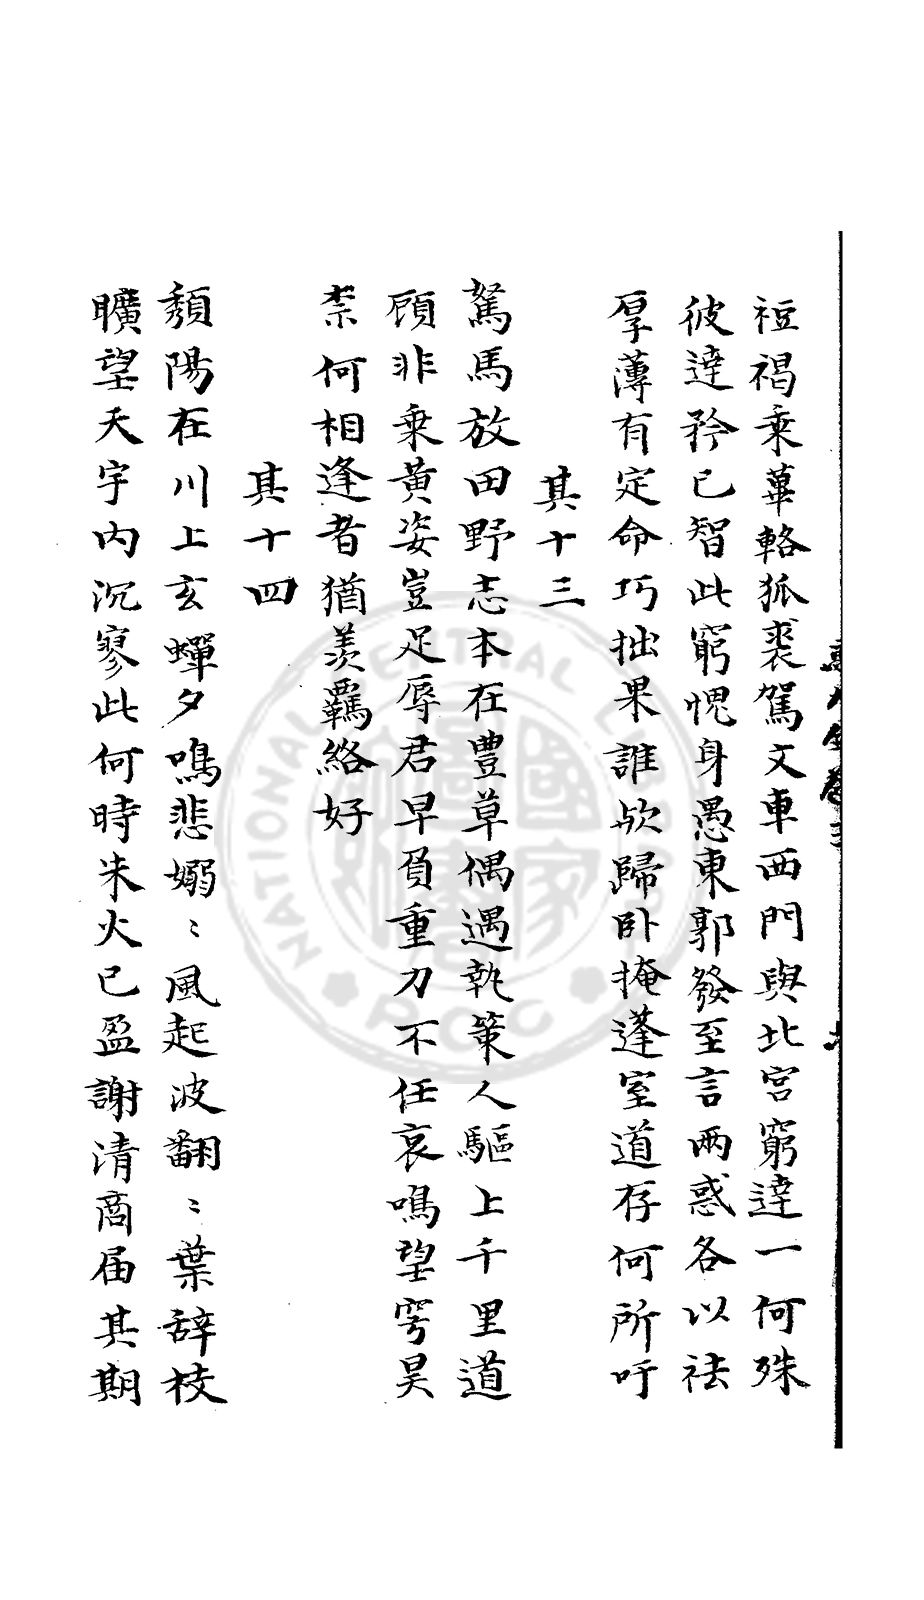 裋褐乘蓽輅狐裘駕文車西門與北宮窮達一何殊
彼達矜已智此窮愧身愚東郭發至言兩惑各以祛
厚薄有定命巧拙果誰欤歸卧掩蓬室道存何所吁
其十三
駑馬放田野志本在豐草偶遇執策人驅上千里道
顧非乘黃姿豈足辱君早負重力不任哀鳴望穹昊
柰何相逢者猶羨羈絡好
其十四
頹陽在川上玄蟬夕鳴悲嫋〻風起波翻〻葉辞枝
曠望天宇內沉寥此何時朱火已盈謝清商届其期
NATIONAL CENTRAL LIBRARY
R.O.C
國家圖書館